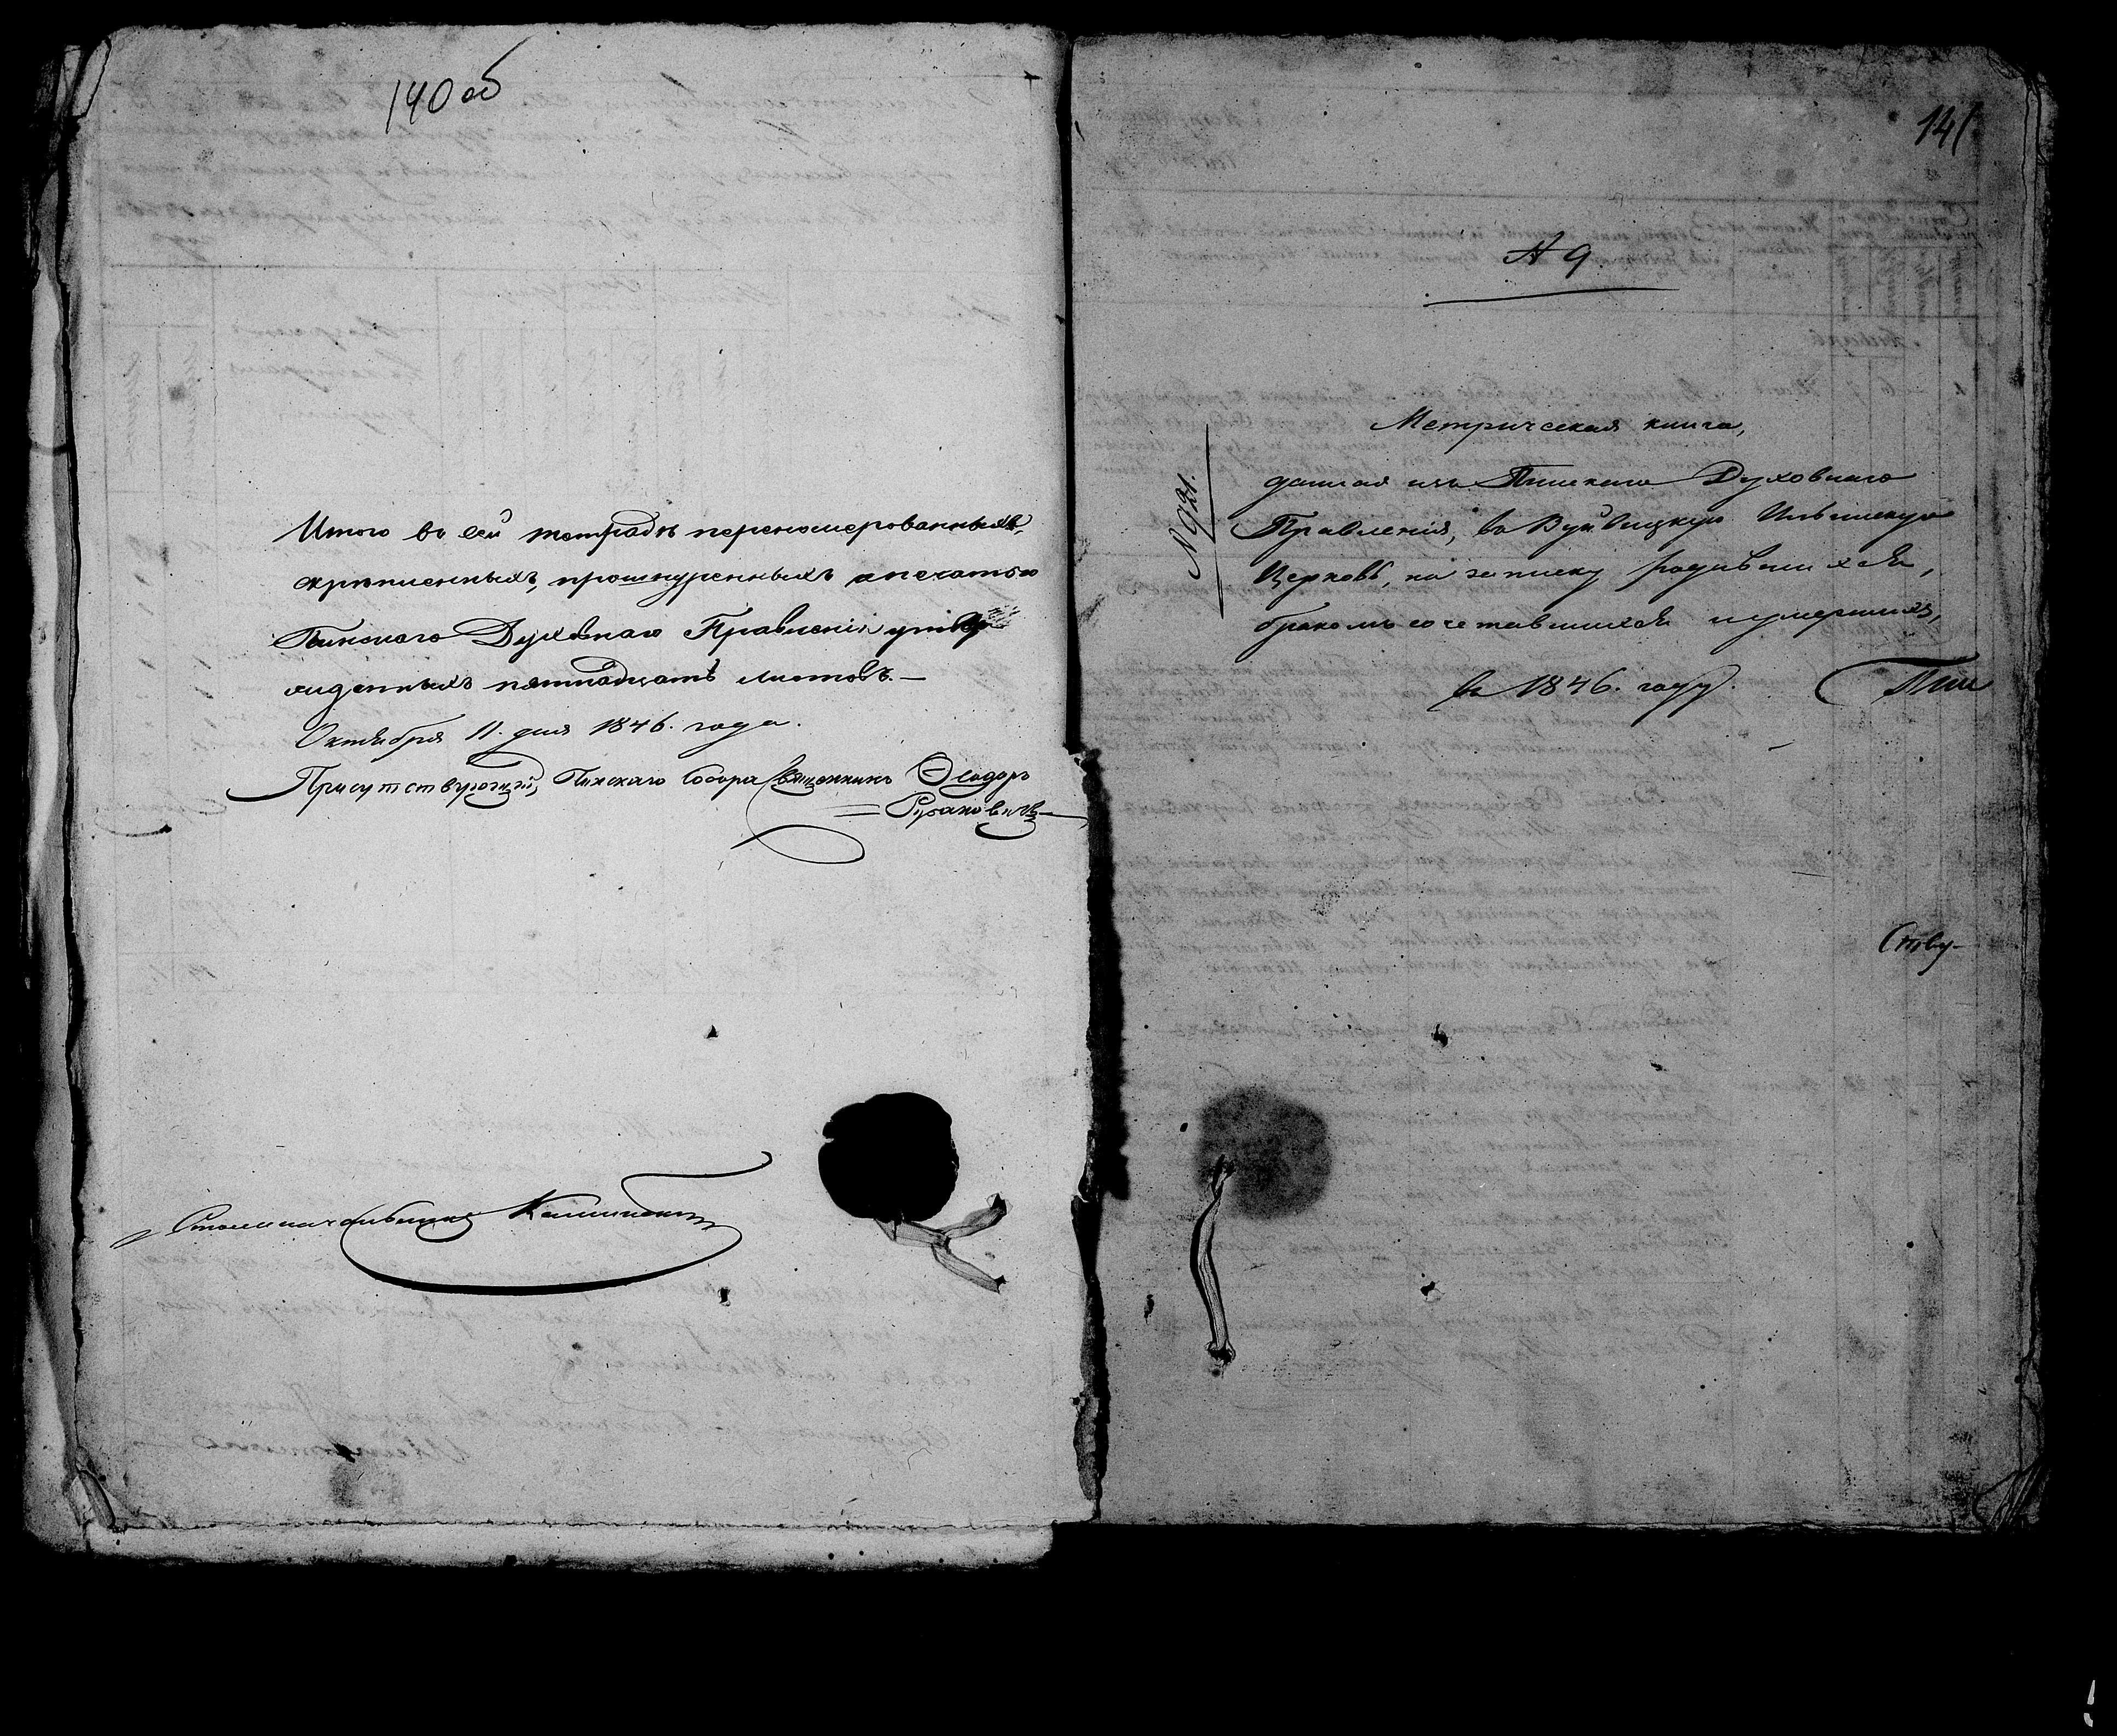 140 об
Итого въ сей тетрадѣ перенумерованныхъ,
скрѣпленныхъ, прошнуренныхъ и печатью
Пинскаго Духовнаго Правленія утвер
жденныхъ пятнадцать листовъ.—
Октября 11. дня 1846. года.
Присутствующій, Пинскаго Собора Священникъ Ѳеодоръ
Русаковичъ
Столоначальникъ
141
№ 9.
№ 921.
Метрическая книга,
данная изъ Пинскаго Духовнаго
Правленія, въ Вуйвицкую Ильинскую
Церковь, на записку родившихся,
бракомъ сочетавшихся и умершихъ,
въ 1846. году.
Пин
Ству-